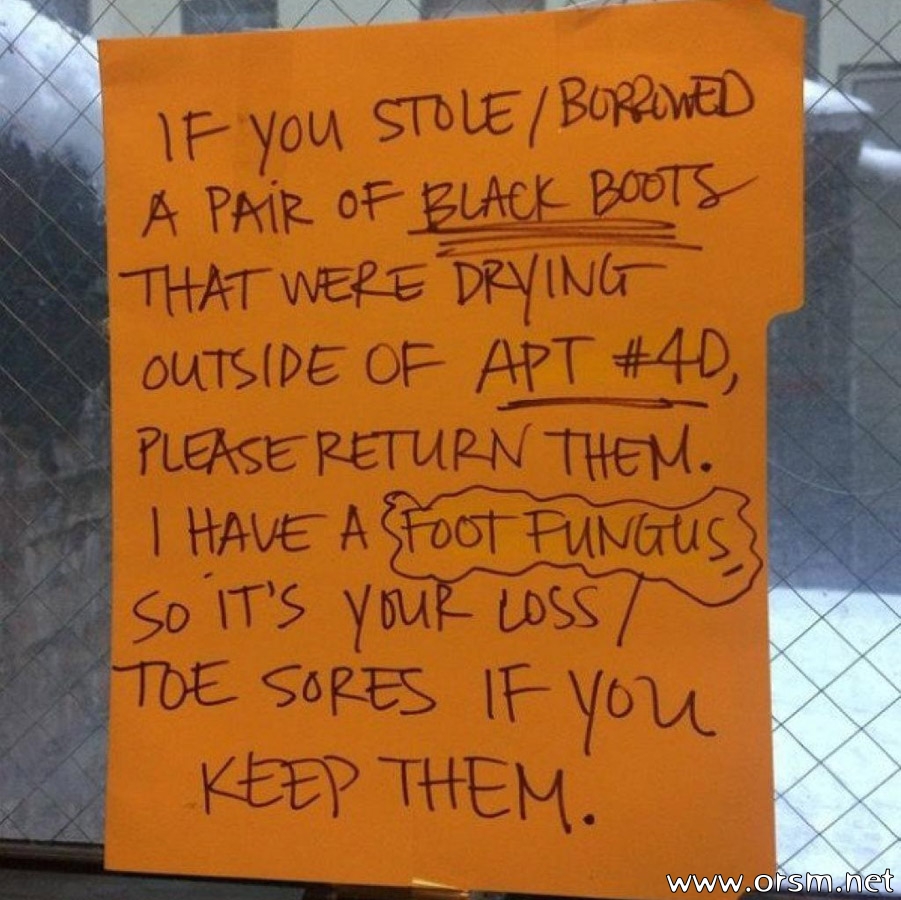 IF YOU STOLE/BORROWED
A PAIR OF BLACK BOOTS
THAT WERE DRYING
OUTSIDE OF APT #4D,
PLEASE RETURN THEM.
I HAVE A FOOT FUNGUS
SO IT'S YOUR LOSS/
TOE SORES IF YOU
KEEP THEM.
www.orsm.net